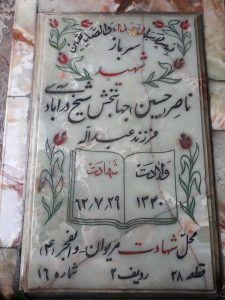 سرباز
شهید
ناصر حسین جهانبخش شیخ درآبادی
فرزند عبدالله
ولادت شهادت
۱۳۴۰ ۶۲/۷/۲۹
محل شهادت مریوان والفجر (۴)
قطعه ۲۸ ردیف ۲ شماره ۱۶